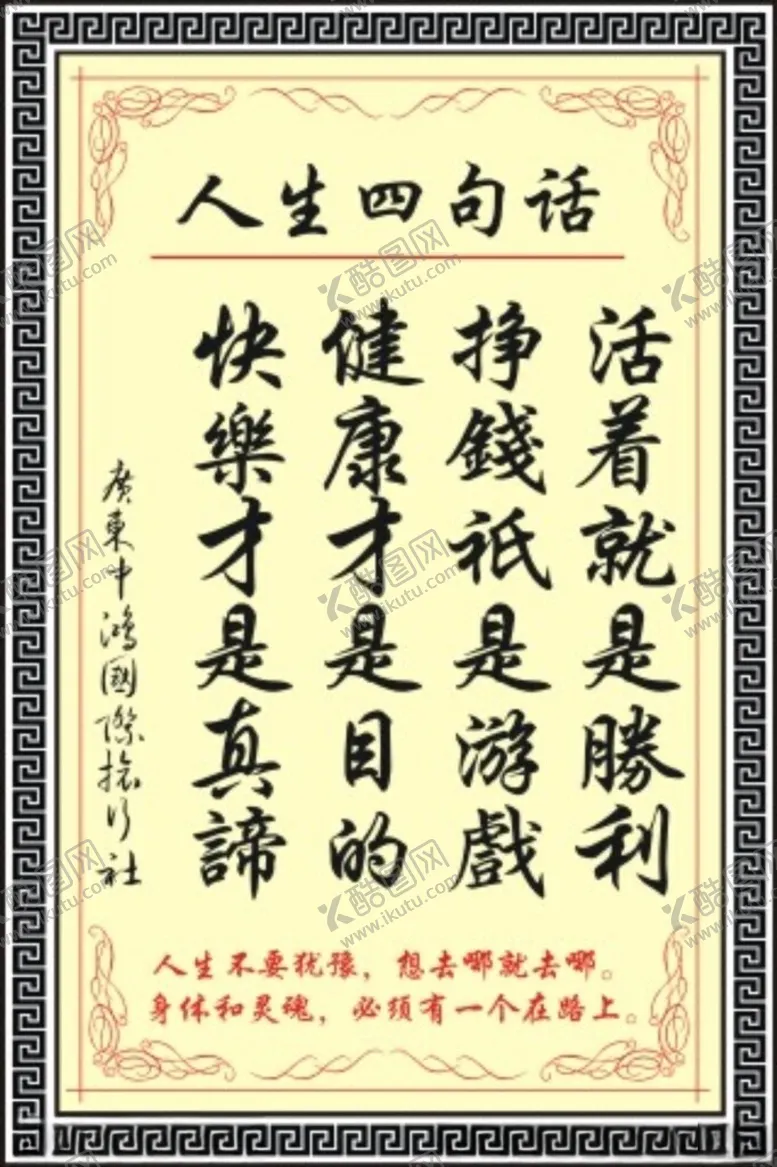 人生四句话
活着就是勝利
挣錢祇是游戲
健康才是目的
快樂才是真諦
廣東中鴻國際旅行社
人生不要犹豫，想去哪就去哪。
身体和灵魂，必须有一个在路上。
酷图网
www.ikutu.com